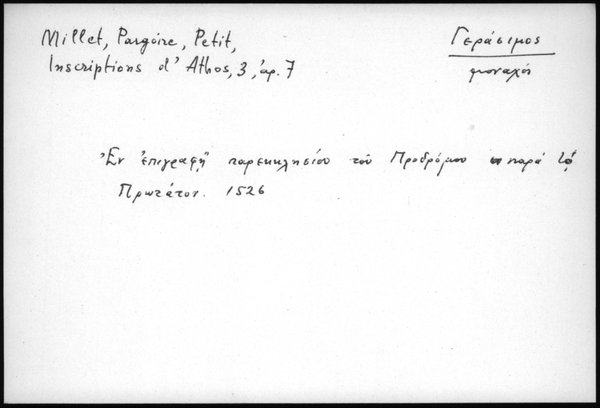 Millet, Pargoire, Petit,
Inscriptions d'Athos, 3, ἀρ. 7
Γεράσιμος
μοναχός
Ἐν ἐπιγραφῇ παρεκκλησίου τοῦ Προδρόμου παρὰ τῷ
Πρωτάτον. 1526